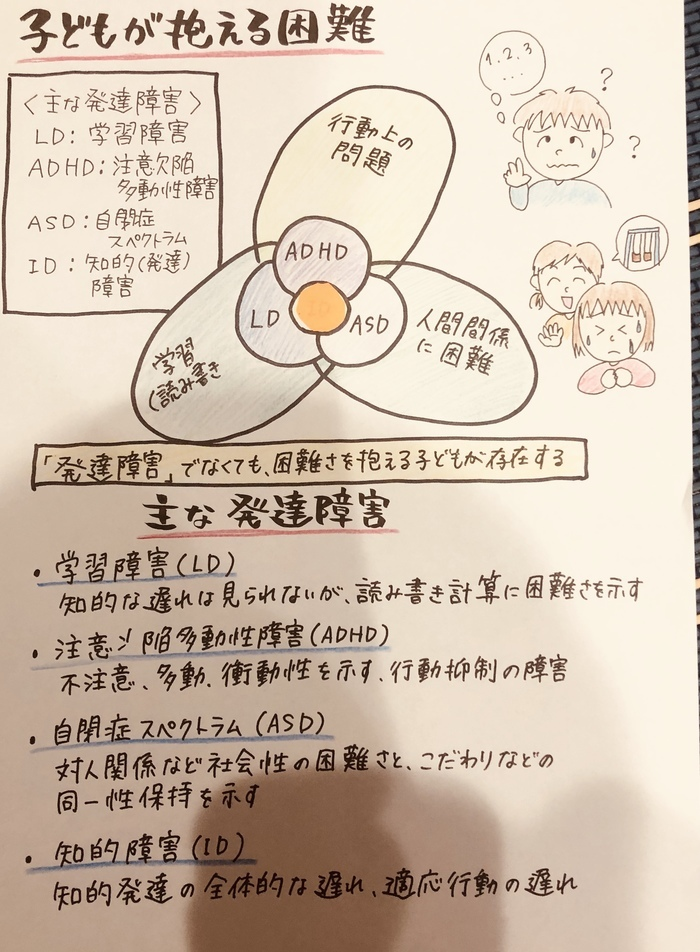 子どもが抱える困難
〈主な発達障害〉
LD：学習障害
ADHD：注意欠陥
多動性障害
ASD：自閉症
スペクトラム
ID：知的(発達)
障害
行動上の
問題
ADHD
LD
ID
ASD
人間間係
に困難
学習
(読み書き
1.2.3
....
?
?
「発達障害」でなくても、困難さを抱える子どもが存在する
主な発達障害
・学習障害(LD)
知的な遅れは見られないが、読み書き計算に困難さを示す
・注意 陥多動性障害(ADHD)
不注意、多動、衝動性を示す、行動抑制の障害
・自閉症スペクトラム(ASD)
対人関係など社会性の困難さと、こだわりなどの
同一性保持を示す
・知的障害(ID)
知的発達の全体的な遅れ、適応行動の遅れ